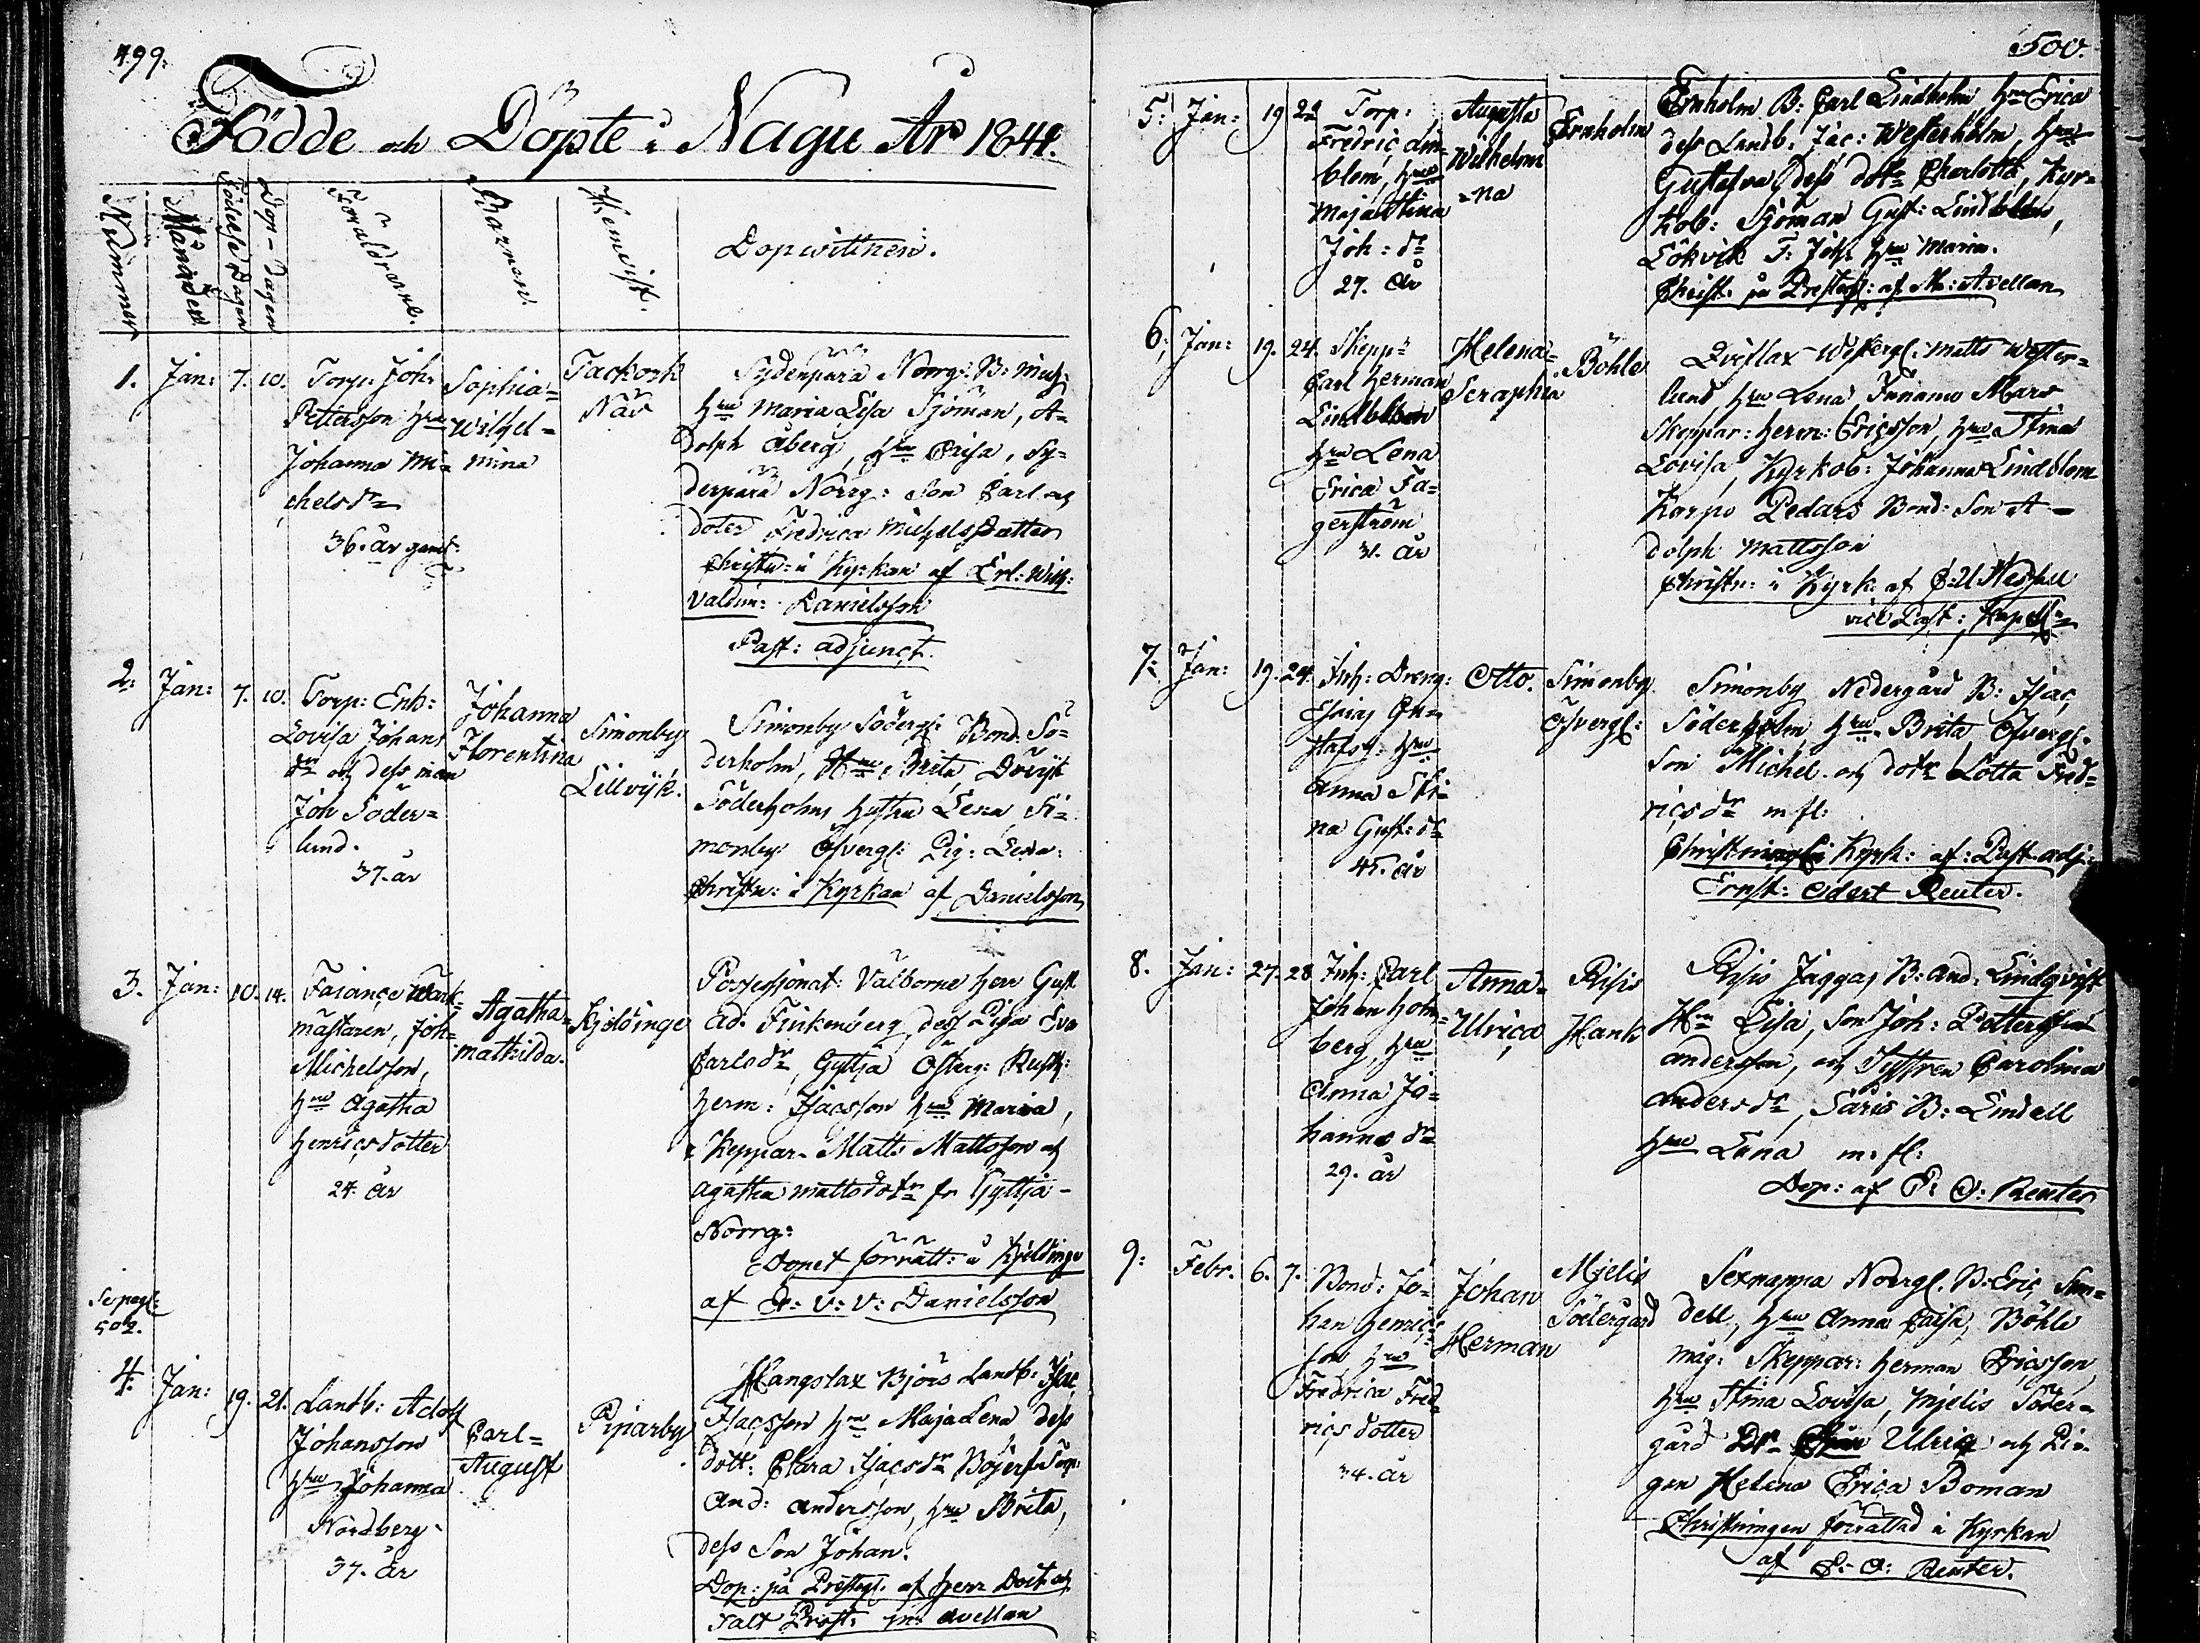 499.
Födde och Döpte i Nagu År 1841.
Nummer
Månaden
Födelse Dagen
Dop-Dagen
Föräldrarne.
Barnen.
Hemvist.
Dopwittnen.
1. Jan: 7. 10.
Torp: Joh:
Pettersson Hru
Johanna Mi-
chels dr
36. år
Sophia=
Wilhel=
mina
Tackork
När
Sydenpära Norrg: B: Mich:
Hru Maria Lisa Sjöman, A-
dolph Åberg, Hru Caisa, Sy-
denpära Norrg: Son Carl och
doter Fredrica Michelsdotter
Christn: i Kyrkan af Erl: Wilh:
Valdim: Danielsson
Past: adjunct.
2. Jan: 7. 10.
Torp: Enk:
Lovisa Johans
dr och dess man
Joh Söder=
lund.
37. år
Johanna
Florentina
Simonby
Lillvik.
Simonby Söderg: Bond: Sö-
derholm, Hru Brita
Söderholms hustru Lena Si-
monby Ofvergl: Pig: Lena:
Christn: i Kyrkan af Danielsson
3. Jan: 10. 14.
Faiance Werk-
mästaren, Joh:
Michelsson,
Hru Agatha
Henricsdotter
24. år
Agatha
Mathilda.
Kjeldinge
Possessionat: Välborne Herr Gust
Ad. Finkenberg, dess Piga Eva
Carlsdr, Gyttja Österg: Rusth:
Herm: Isacsson Hru Maria,
Skeppar. Matts Mattsson och
Agatha Mattsdotr fr Gyttja-
Norrg:
Dopet förrätt: i Kjeldinge
af E: V: V: Danielsson
Se pag:
502.
4. Jan: 19. 21.
Lantb: Adolf
Johansson
Hru Johanna
Nordberg
37. år
Carl=
August
Piparby
Mangslax Björs Lantb: Isac
Isacsson Hru Maja Lena dess
dott: Clara Isacsdr Torp:
And: Andersson, Hru Brita,
dess Son Johan.
Dop: på Prestg: af Herr Doct och
Prost: M: Avellan
500.
5: Jan: 19 22
Torp:
Fredric Lin-
blom, Hru
Maja Stina
Joh: dr
27. år
Augusta
Wilhelmi
=na
Ernholm
Ernholm B: Carl Lindholm, Hru Erica
dess Landb. Jac: Westerholm, Hru
Gustafva, dess dotr Charlotta, Kyr-
kob: Sjöman Gust: Lindblom,
Lökvik T: Joh: Hru Maria.
Christ. på Prestg: af M: Avellan
6. Jan: 19. 24.
Skepp:
Carl Herman
Lindblom
Hru Lena
Erica Fa-
gerström
31. år
Helena=
Seraphia
Böhle
Qvistax Westergl: Matts Wester-
lund, Hru Lena
Skeppar: Herm: Ericsson, Hru Stina
Lovisa, Kyrkob: Johanna Lindblom
Korpo Pedars Bond: Son A-
dolph Mattsson
Christn: i Kyrk: af
vice Past:
7: Jan: 19. 24.
Inh: Dreng:
Esaias Gu-
stafss: Hru
Anna Sti-
na Gust: dr
45. år
Otto.
Simonby
Ofvergl:
Simonby Nedergård B: Isac
Söderholm Hru Brita Ofvergl.
Son Michel och dotr Lotta Fred-
rics dr m fl:
Christningen i Kyrk: af: Past. adj:
Ernst: Edert Reuter.
8. Jan: 27. 28
Inh: Carl
Johan Holm-
berg, Hru
Anna Jo-
hanns dr
29. år
Anna=
Ulrica
Risis
Hank
Risis Jaggas B: And: Lindqvist
Hru Lisa, Son Joh: Pettersson
Andersson, och Systren Carolina
Anders dr, Säris B: Lindell
Hru Lena m. fl:
Dop: af E: O: Reuter
9: Febr. 6. 7.
Bond: Jo-
han Henrics
son, Hru
Fredrica Fred-
rics dotter
34. år
Johan
Herman
Mjelis
Södergård
Sexnappa Norrgl. B: Eric Sun-
dell, Hru Anna Caisa, Böhle
måg: Skeppar: Herman Ericsson,
Hru Stina Lovisa, Mjelis Söder-
gård Dr Ulrica och Pi-
gan Helena Erica Boman
Christningen förrättad i Kyrkan
af E: O: Reuter.